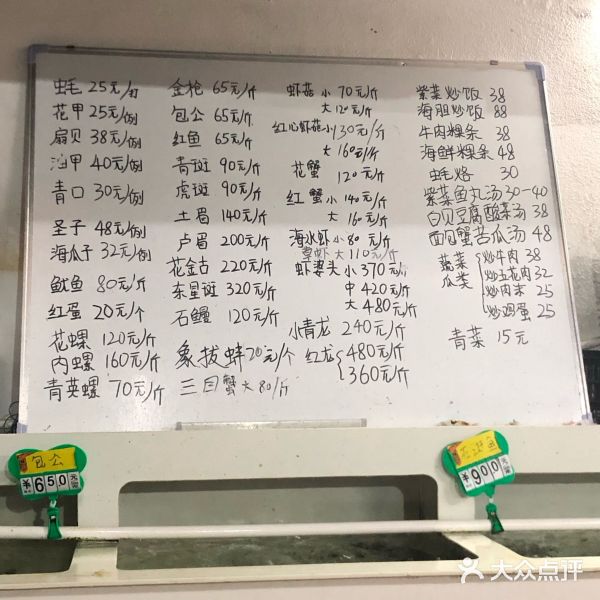 虫毛 25元/打
花甲 25元/例
扇贝 38元/例
油甲 40元/例
青口 30元/例
圣子 48元/例
海瓜子 32元/例
鱿鱼 80元/斤
红蛋 20元/个
花螺 120元/斤
内螺 160元/斤
青英螺 70元/斤
金枪 65元/斤
包公 65元/斤
红鱼 65元/斤
青斑 90元/斤
虎斑 90元/斤
土眉 140元/斤
卢眉 200元/斤
花金古 220元/斤
东星斑 320元/斤
石鳗 120元/斤
象拔蚌 70元/个
三目蟹 大 80/斤
虾菇 小 70元/斤
大 120元/斤
红心虾菇 小 130元/斤
大 160元/斤
花蟹 120元/斤
红蟹 小 140元/斤
大 160元/斤
海水虾 小 80元/斤
大 110元/斤
虾婆头 小 370元/斤
中 420元/斤
大 480元/斤
小青龙 240元/斤
红龙 480元/斤
360元/斤
紫菜炒饭 38
海胆炒饭 88
牛肉粿条 38
海鲜粿条 48
虫毛烙 30
紫菜鱼丸汤 30-40
白贝豆腐酸菜汤 38
西同蟹苦瓜汤 48
蔬菜瓜类 炒牛肉 38
炒五花肉 32
炒肉末 25
炒鸡蛋 25
青菜 15元
包公
¥650元
¥900元
大众点评